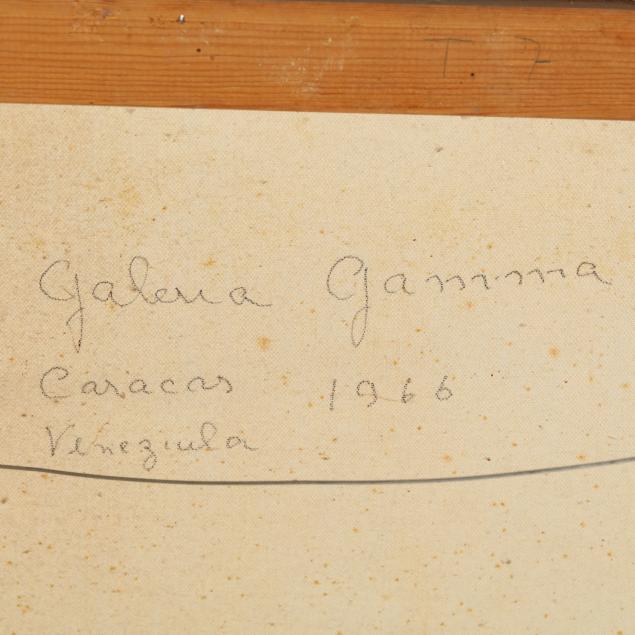 T. 7
Galeria Gamma
Caracas 1966
Veneziula